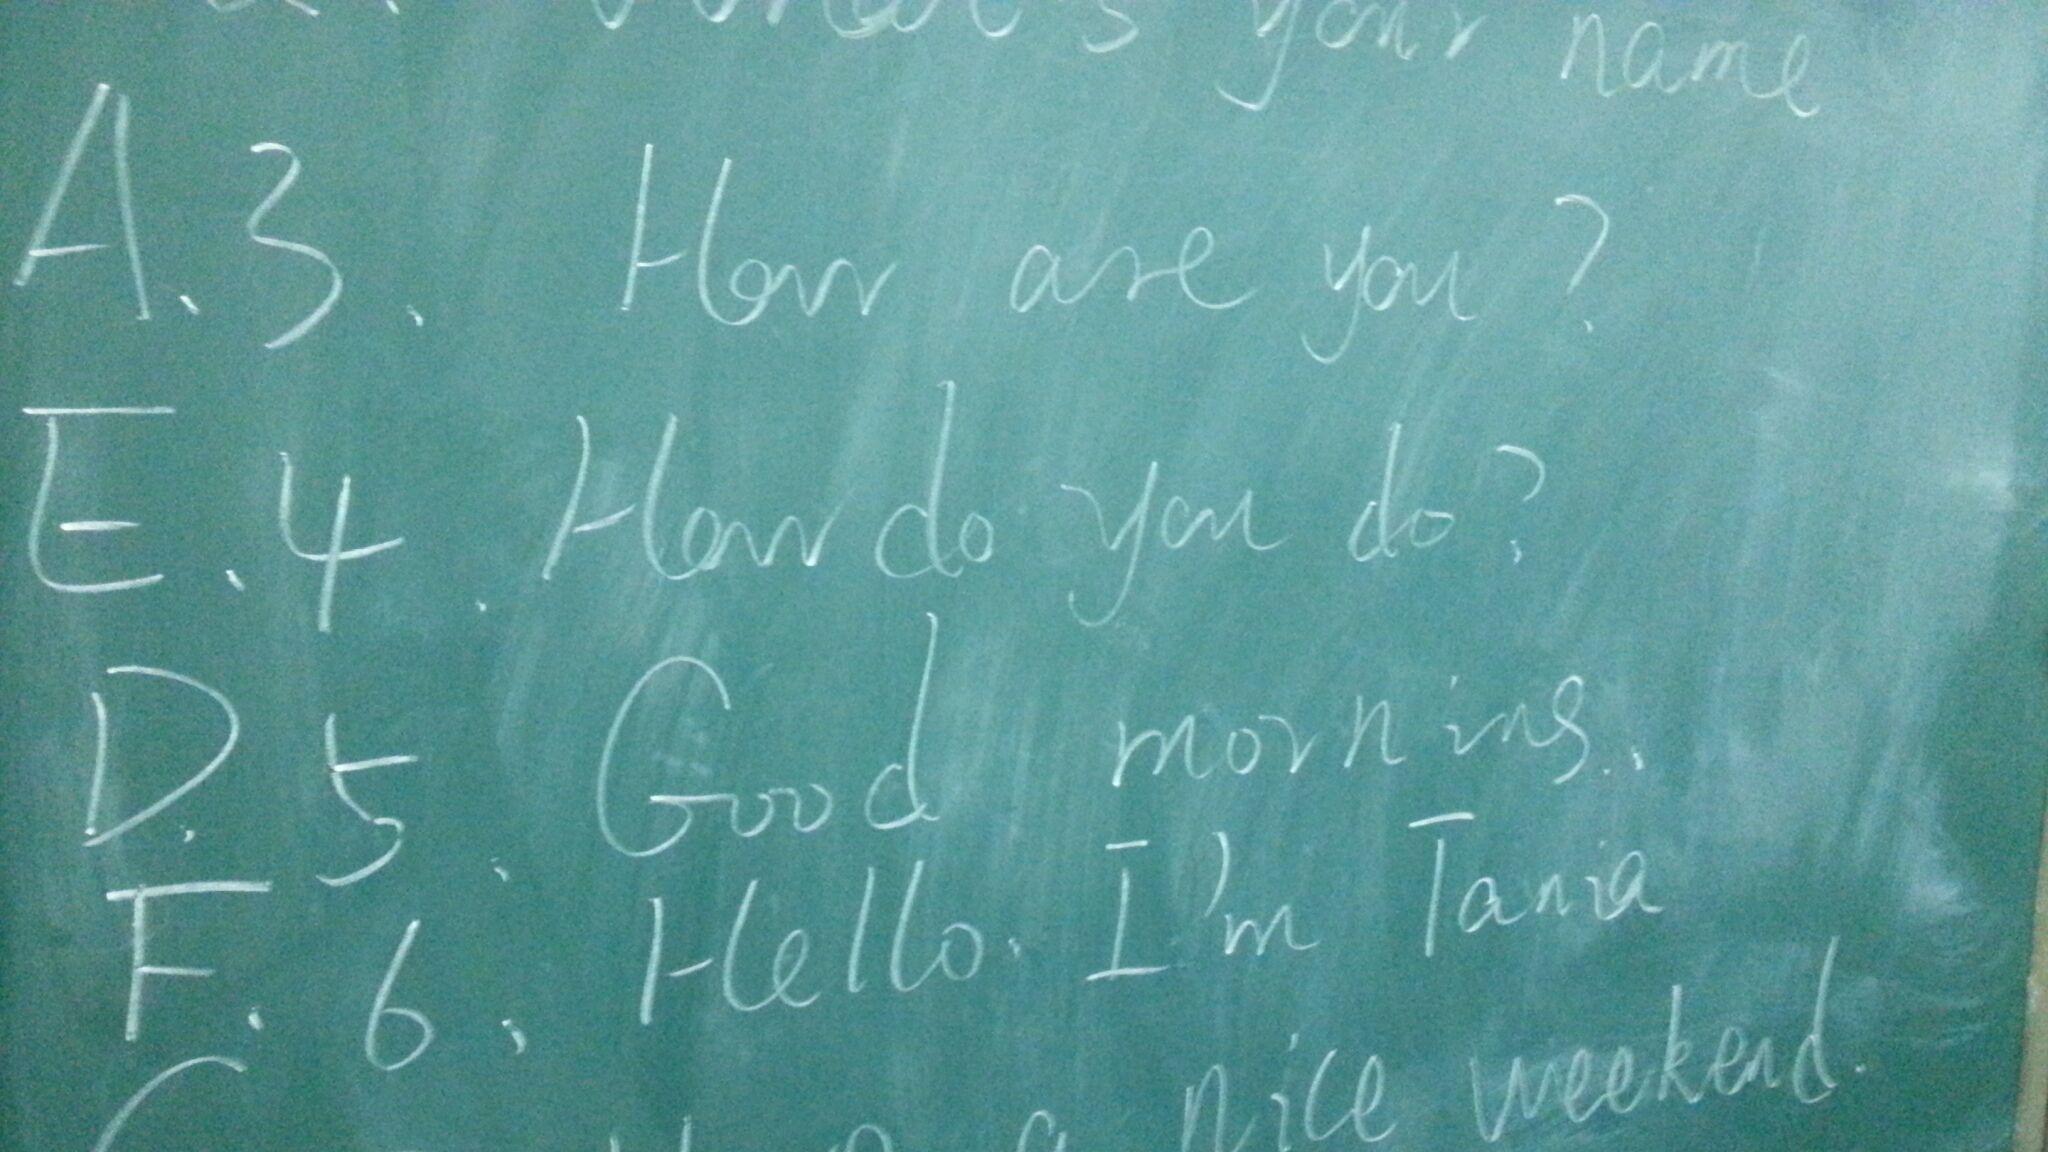 What's your name
A. 3. How are you?
E. 4. How do you do?
D. 5. Good morning.
F. 6. Hello. I'm Tania
a nice weekend.